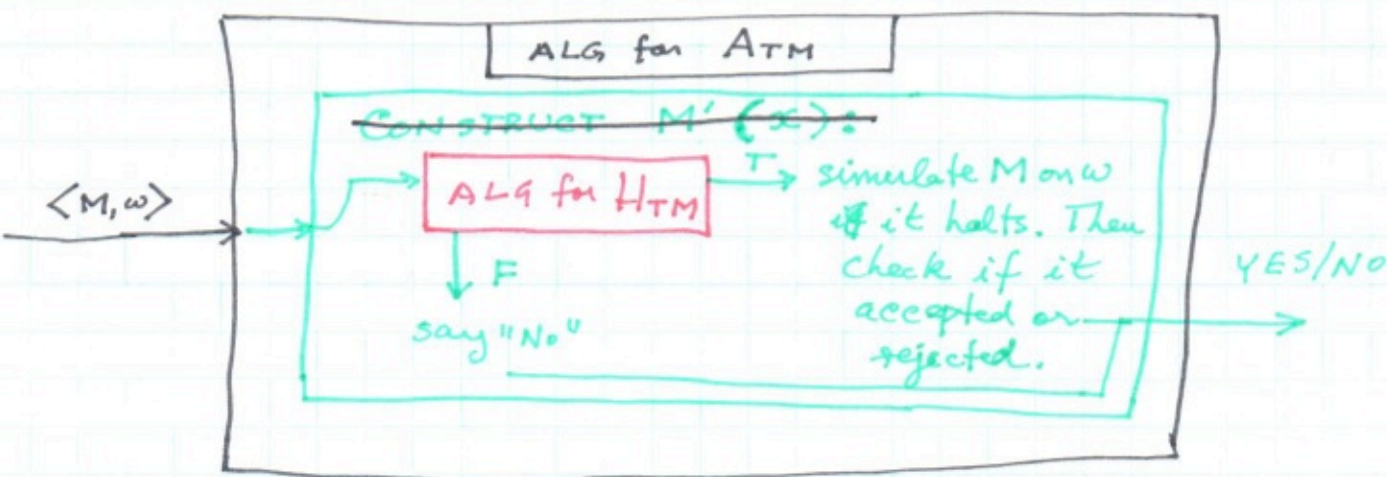 ALG for ATM
CONSTRUCT M' (x):
<M, w>
ALG for HTM
T
simulate M on w
it halts. Then
check if it
accepted or
rejected.
F
say "No"
YES/NO